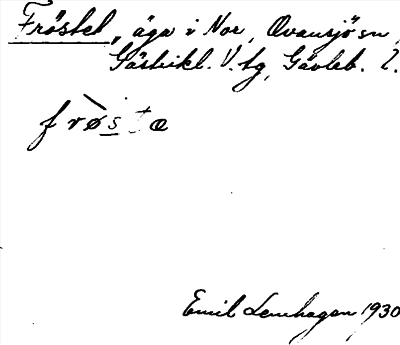 Fröstet, äga i Nor, Ovansjö sn,
Gästrikl. V. tg, Gävleb. l.
frøstæ
Emil Lenhagen 1930